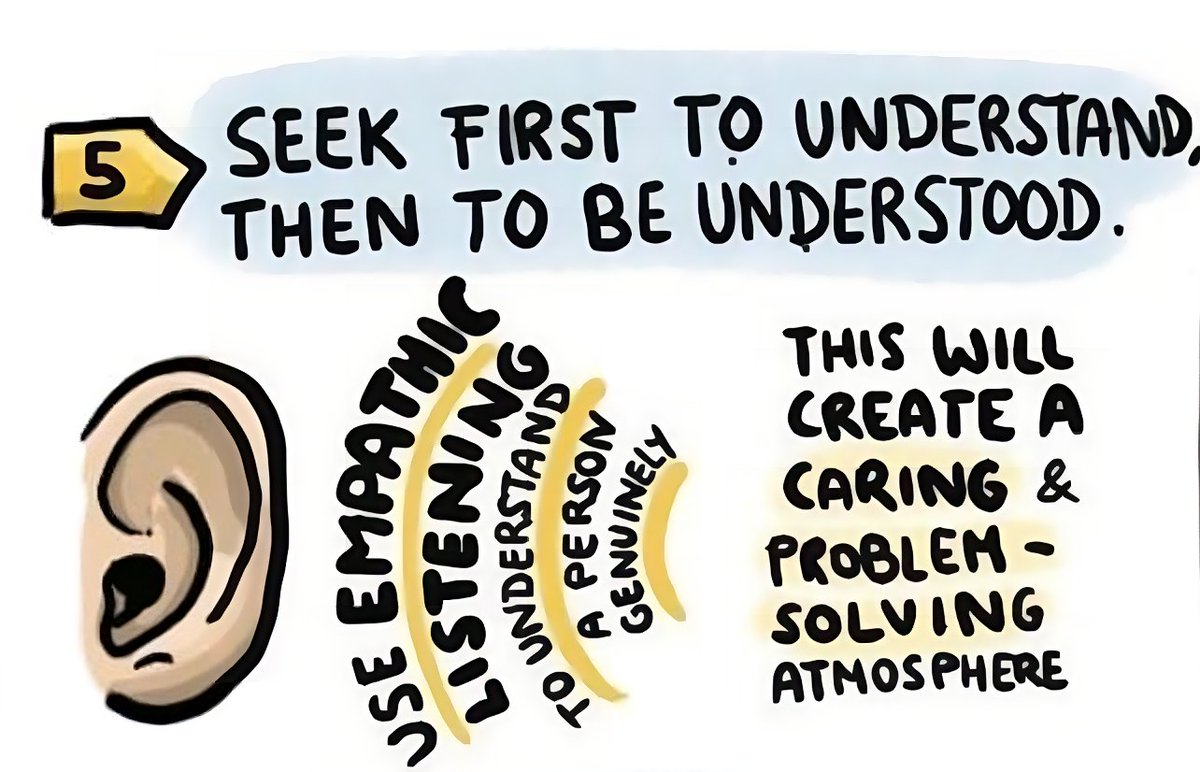 5
SEEK FIRST TO UNDERSTAND,
THEN TO BE UNDERSTOOD.
USE EMPATHIC
LISTENING
TO UNDERSTAND
A PERSON
GENUINELY
THIS WILL
CREATE A
CARING &
PROBLEM-
SOLVING
ATMOSPHERE